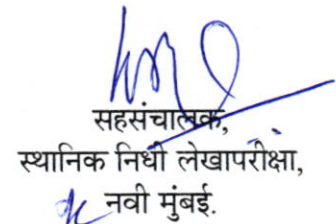 सहसंचालक,
स्थानिक निधी लेखापरीक्षा,
नवी मुंबई.